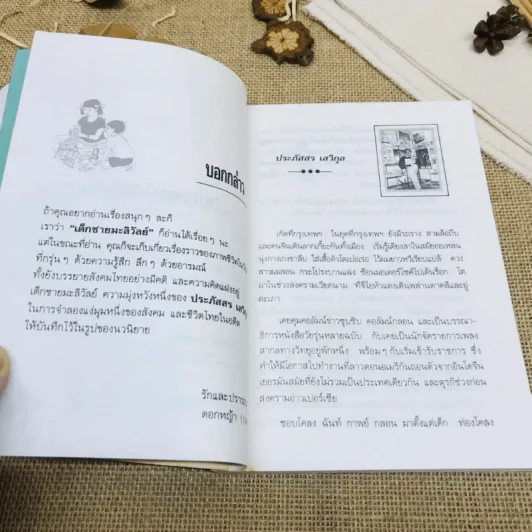 บอกกล่าว
ถ้าคุณอยากอ่านเรื่องสนุกๆ ละก็
เราว่า "เด็กชายมะลิวัลย์" ก็อ่านได้เรื่อยๆ นะ
แต่ในขณะที่อ่าน คุณก็จะเก็บเกี่ยวเรื่องราวของภาพชีวิตใน
ที่กรุ่นๆ ด้วยความรู้สึก ลึกๆ ด้วยอารมณ์
ทั้งยังบรรยายสังคมไทยอย่างมีคติ และความคิดแฝงอยู่
เด็กชายมะลิวัลย์ ความมุ่งหวังหนึ่งของ ประภัสสร เสวิกุล
ในการจำลองแง่มุมหนึ่งของสังคม และชีวิตไทยในอดีต
ให้บันทึกไว้ในรูปของนวนิยาย
รักและปรารถ
ดอกหญ้า
ประภัสสร เสวิกุล
เกิดที่กรุงเทพฯ ในยุคที่กรุงเทพฯ ยังมีรถราง สามล้อถีบ
และคนจีนเดินลากเกี๊ยะกันทั้งเมือง เริ่มรู้เดียงสาในสมัยออเหลน
นุ่งกางเกงขาลีบ ใส่เสื้อตัวโตเปอร์เซ่อ ไว้ผมยาวหวีเรียบแปล้ ควง
สาวผมลอน กระโปรงบานแฉ่ง ซ้อนมอเตอร์ไซค์ไปเต้นร็อก โต
มาในช่วงสงครามเวียดนาม ที่จีไอหัวแดงเดินเพ่นพ่านตาคลีและอู่
ตะเภา
เคยคุมคอลัมน์ข่าวซุบซิบ คอลัมน์กลอน และเป็นบรรณา-
ธิการหนังสือวัยรุ่นหลายฉบับ กับเคยเป็นนักจัดรายการเพลง
สากลทางวิทยุอยู่พักหนึ่ง พร้อมๆ กับเริ่มเข้ารับราชการ ซึ่ง
ทำให้มีโอกาสไปทำงานที่ลาวตอนอเมริกันถอนตัวจากอินโดจีน
เยอรมันสมัยที่ยังไม่รวมเป็นประเทศเดียวกัน และตุรกีช่วงก่อน
สงครามอ่าวเปอร์เซีย
ชอบโคลง ฉันท์ กาพย์ กลอน มาตั้งแต่เด็ก ท่องโคลง